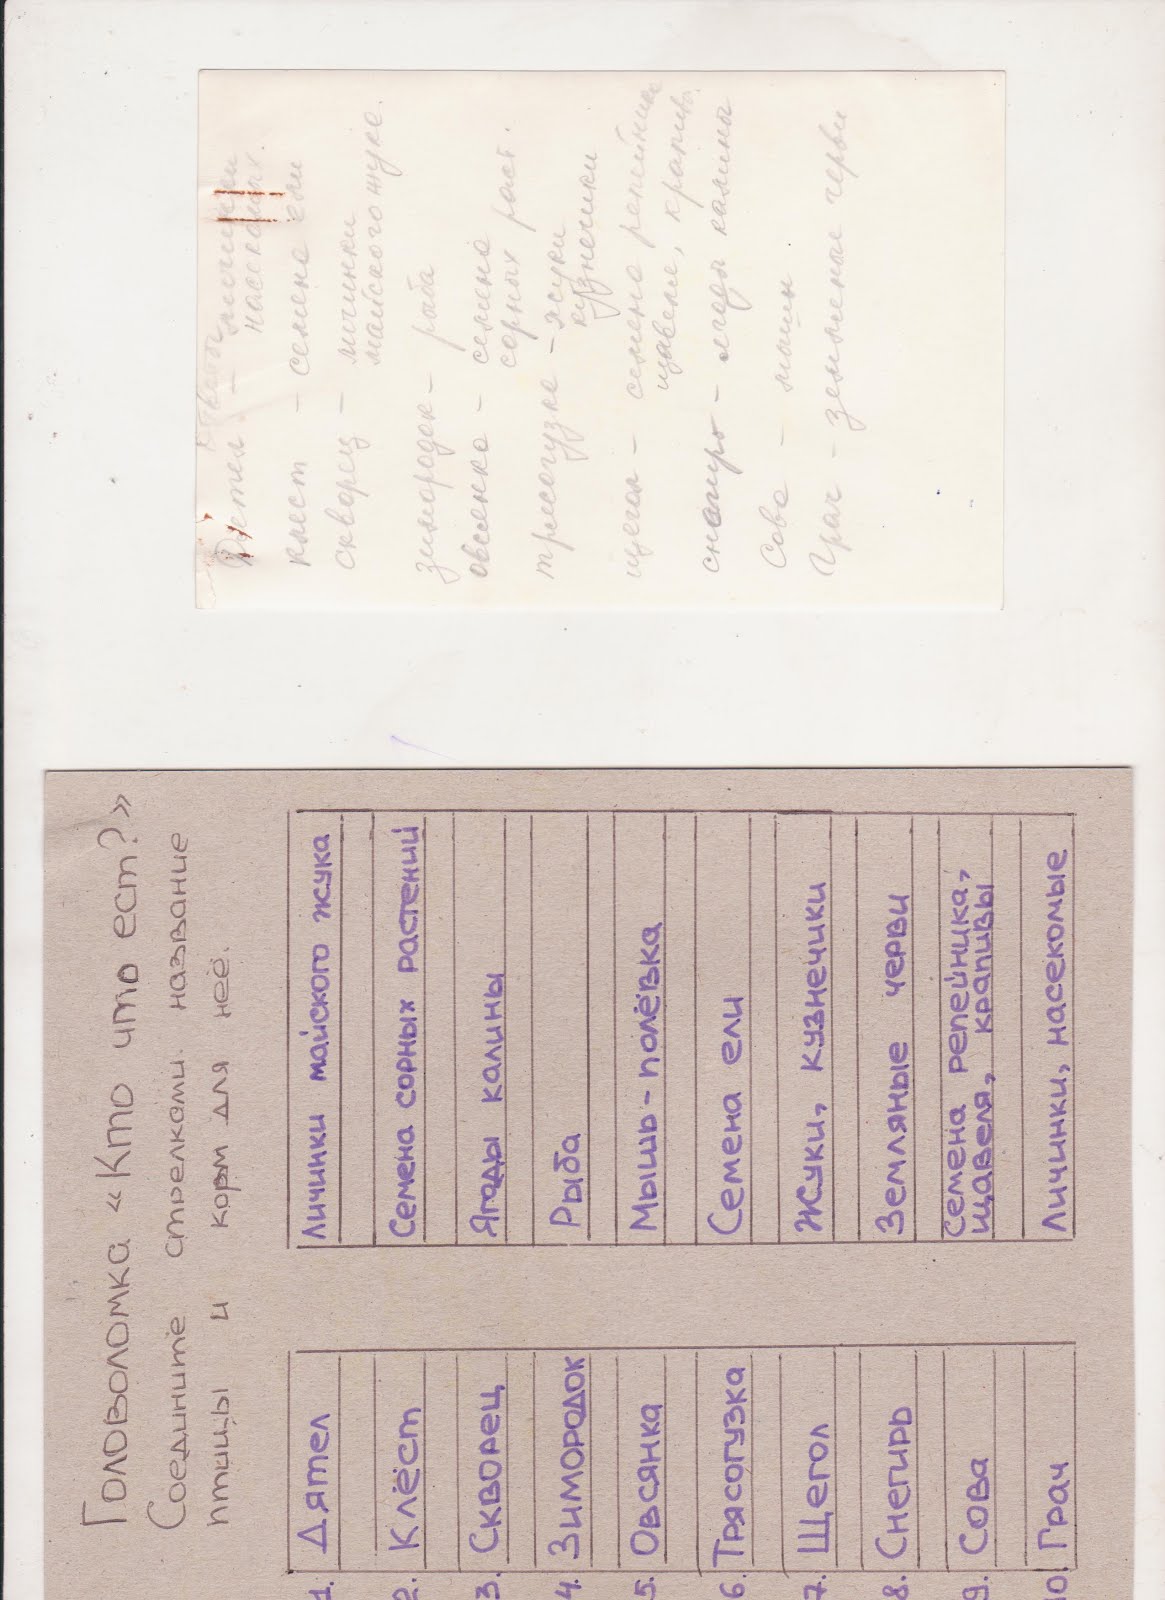 Ответы
Дятел – личинки
насекомых.
клест – семена ели
скворец – личинки
майского жука.
зимородок – рыба
овсянка – семена
сорных раст.
трясогузка – жуки
кузнечики
щегол – семена репейника
щавеля, крапивы.
снегирь – ягоды калины
Сова – мыши
Грач – земляные черви
Головоломка «Кто что ест?»
Соедините стрелками название
птицы и корм для неё.
1. Дятел
2. Клёст
3. Скворец
4. Зимородок
5. Овсянка
6. Трясогузка
7. Щегол
8. Снегирь
9. Сова
10. Грач
Личинки майского жука
Семена сорных растений
Ягоды калины
Рыба
Мышь-полёвка
Семена ели
Жуки, кузнечики
Земляные черви
Семена репейника,
щавеля, крапивы
Личинки, насекомые